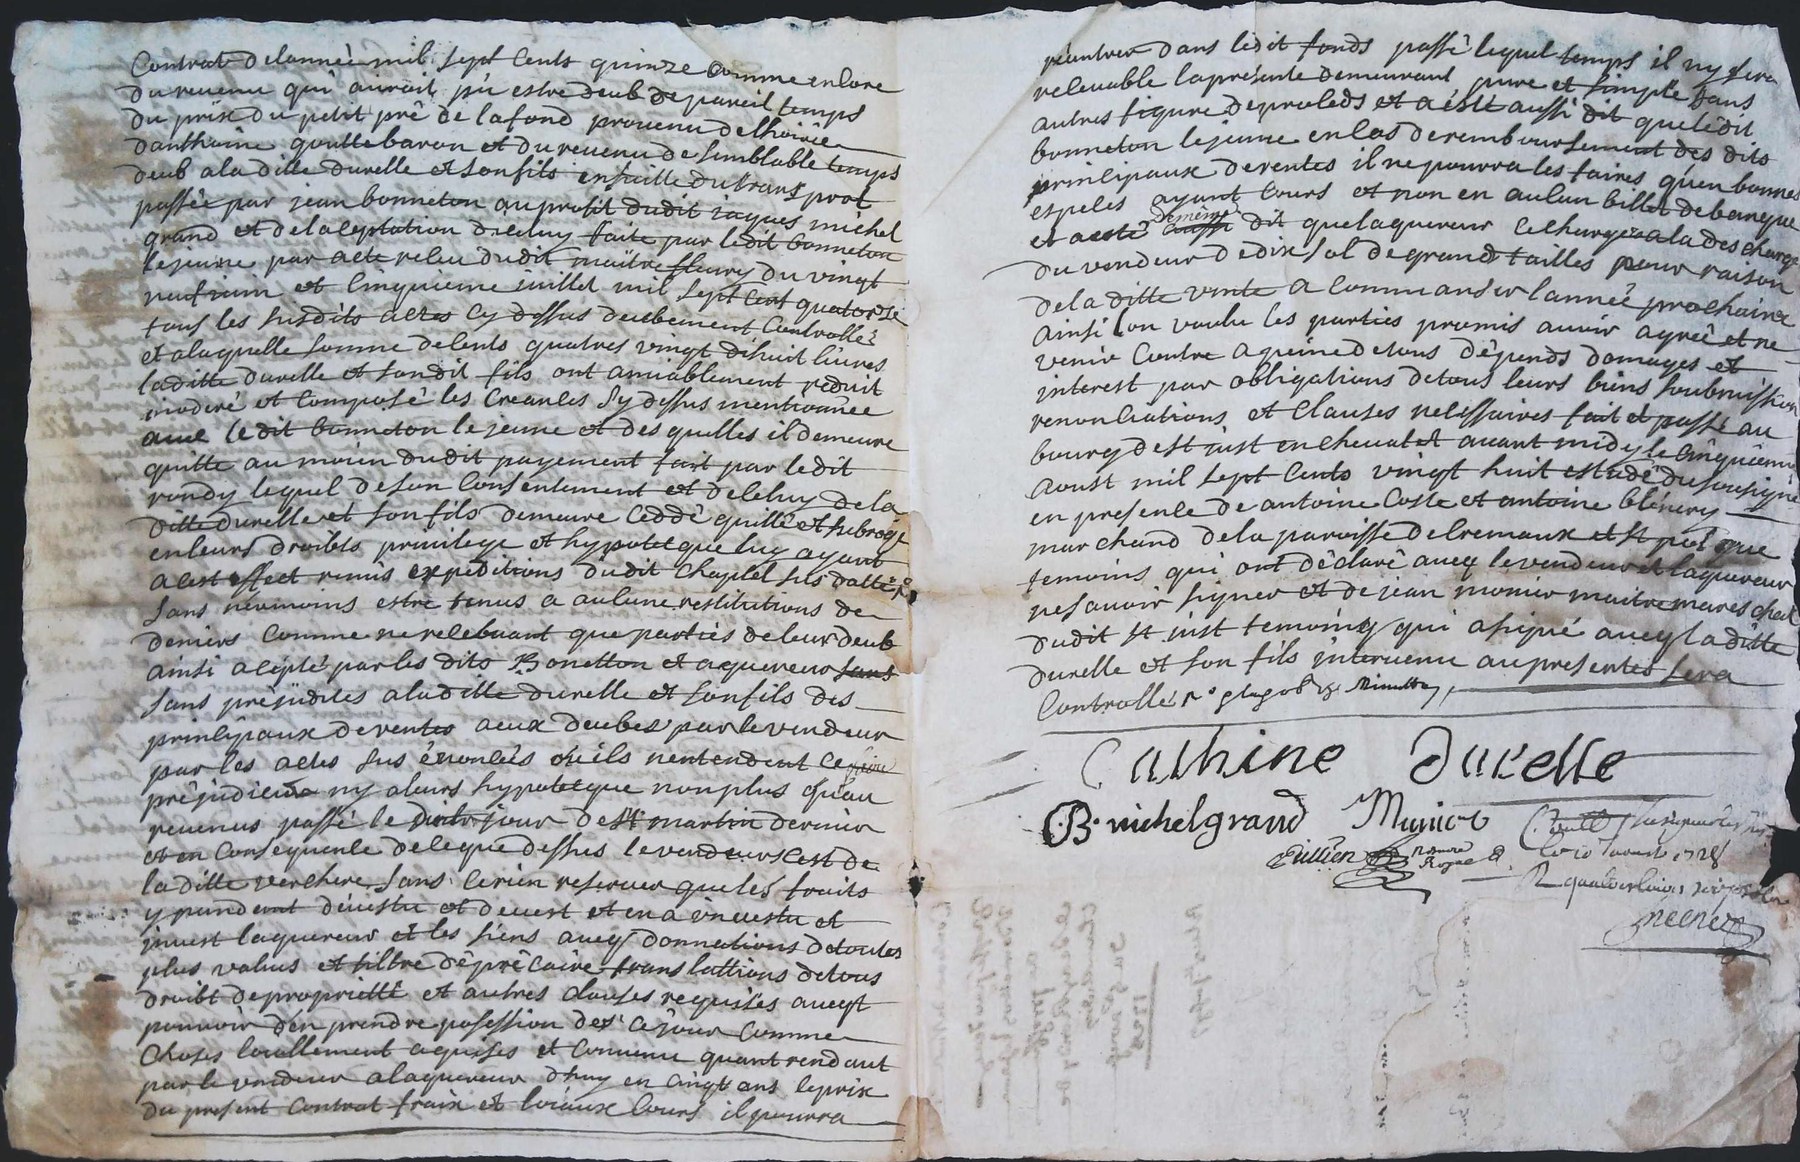 Contrat delannéé mil sept Cents quinze Comme encore
du revenu qui auroit pû estre deub de pareil temps
du prix du petit prê de lafond prouenu delhoirie
danthoine gouttebaron et durevenu de semblable temps
deub a la ditte durelle et son fils ensuitte du transport
passée par jean bonneton auprofit dudit jaques michel
grand et delaceptation dicelluy faite par ledit bonneton
lejeune par acte receu dudit maitre fleury du vingt
neuf juin et Cinquieme juillet mil sept Cent quatorse
tous les susdits actes cy dessus deubement Controllés
et alaquelle somme decents quatres vingt dihuit livres
laditte durelle et sondit fils ont amiablement reduit
moderé et Composé les Creances sy dessus mentionnée
avec le dit bonneton le jeune et des quelles il demeure
quitte au moien dudit payement fait par ledit
rondy lequel deson Consentement et deceluy dela
ditte durelle et son fils demeure Ceddé quitté et subrogé
enleurs droibts privilege et hypoteque luy ayant
acest effect remis expeditions dudit Chaplet sus datté
sans neamoins estre tenus a aucune restitutions de
deniers Comme ne recebuant que parties deleur deub
ainsi acépté parles dits Bonetton et aquereur sans
sans préjudices aladitte durelle et sonfils des
principaux deventes aeux deubes par levendeur
par les actes sus énoncés où ils nentendent ce faire
préjudice ny aleurs hypoteque nonplus qu'au
revenus passé le jour de st martin dernier
et en Consequence deceque dessus levendeur cest de
laditte verchere sans cerien reserver queles fruits
y pendent devestu et devest et en a investu et
invest laquereur et les siens avecq donnations detoutes
plus values et tiltre dé précaire translattions detous
droibt depropriette et autres clauses requises avecqt
pouvoir den prendre posession dés cejour Comme
Choses loyallement aquises et Convenu quant rendant
par le vendeur alaquereur dhuy en cingt ans leprix
du present Contrat fraix et loiaux Cours il pourra
réentrer dans ledit fonds passé lequel temps il ny sera
recevable laprésente demeurant pure et simple sans
autres figure deproceds et a ésté aussi dit queledit
bonneton lejeune encas deremboursement des dits
principaux derentes il ne pourra les faires quen bonnes
especes ayant Cours et non en aucun billet debanque
et aesté demême dit quelaquereur cechargera aladescharge
du vendeur dedix sol degrands tailles pour raison
dela ditte vente a Commanser lannéé prochaine
ainsi lon voulu les parties promis avoir agréé et ne
venir Contre apeine detous dépends domages et
interest par obligations detous leurs biens soubmission
renonciations et Clauses necessaires fait et passé au
bourg dest just enchevalet avant midy le Cinquieme
aoust mil sept Cents vingt huit estude dusousigné
en presence de antoine Coste et antoine blénery
marchand delaparoisse decremaux et st pol que
temoins qui ont déclaré avecq levendeur et laquereur
nesavoir signer et de jean monier maitre mareschal
dudit st just temoing qui asigné avecq laditte
durelle et son fils intervenu aupresentes sera
Controllé
Cathine Durelle
B. michelgrand Munier
Jullien Notaire
Royal